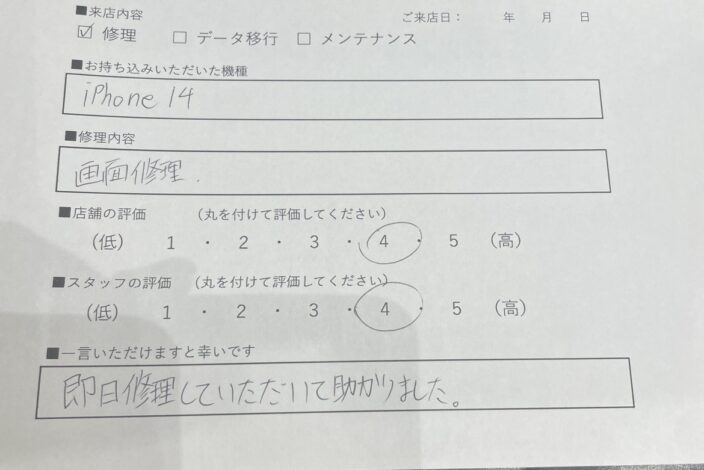 ■来店内容
ご来店日： 年 月 日
☑ 修理 □ データ移行 □ メンテナンス
■お持ち込みいただいた機種
iPhone 14
■修理内容
画面修理.
■店舗の評価 （丸を付けて評価してください）
（低） 1 ・ 2 ・ 3 ・ 4 ・ 5 （高）
■スタッフの評価 （丸を付けて評価してください）
（低） 1 ・ 2 ・ 3 ・ 4 ・ 5 （高）
■一言いただけますと幸いです
即日修理していただいて助かりました。